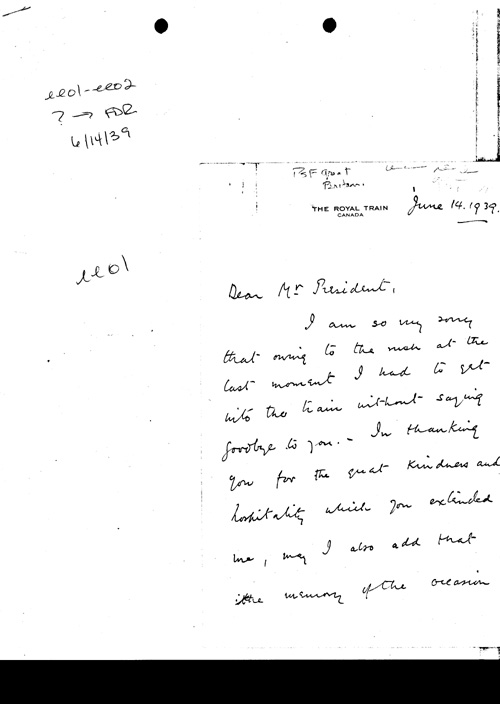 ee01-ee02
? → FDR
6/14/39
PSF Great
Britain.
THE ROYAL TRAIN
CANADA
June 14. 1939.
ee01
Dear Mr President,
I am so very sorry
that owing to the rush at the
last moment I had to get
into the train without saying
goodbye to you. - In thanking
you for the great kindness and
hospitality which you extended
me, may I also add that
the memory of the occasion